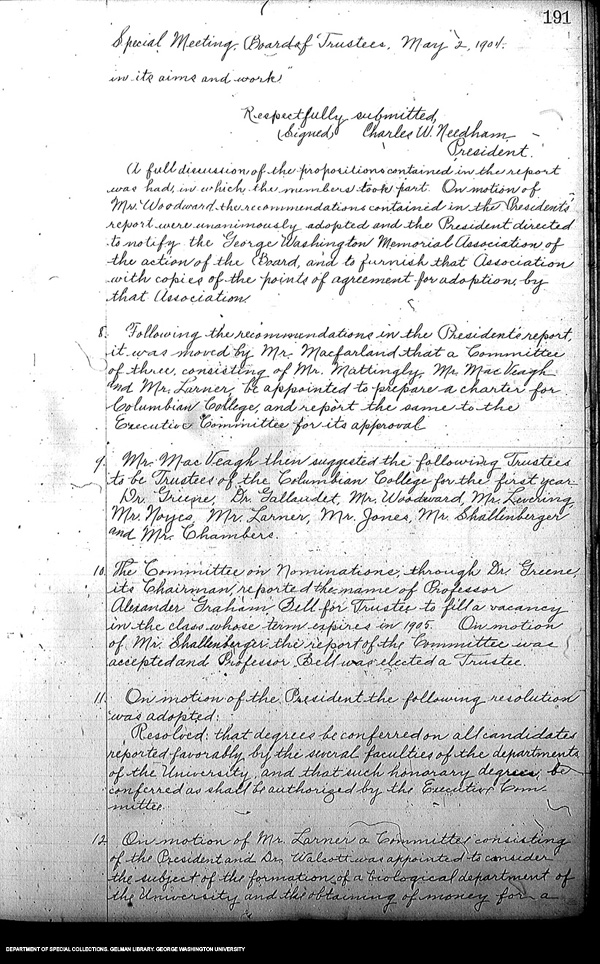 191
Special Meeting, Board of Trustees, May 2, 1904.
in its aims and work"
Respectfully submitted,
(Signed) Charles W. Needham
President.
A full discussion of the propositions contained in the report
was had, in which the members took part. On motion of
Mr. Woodward the recommendations contained in the Presidents'
report were unanimously adopted and the President directed
to notify the George Washington Memorial Association of
the action of the Board, and to furnish that Association
with copies of the points of agreement for adoption by
that Association.
8. Following the recommendations in the President's report,
it was moved by Mr. Macfarland that a Committee
of three, consisting of Mr. Mattingly, Mr. MacVeagh
and Mr. Larner, be appointed to prepare a charter for
Columbian College, and report the same to the
Executive Committee for its approval
9. Mr. MacVeagh then suggested the following Trustees
to be Trustees of the Columbian College for the first year:
Dr. Greene, Dr. Gallaudet, Mr. Woodward, Mr. Levering,
Mr. Noyes, Mr. Larner, Mr. Jones, Mr. Shallenberger
and Mr. Chambers.
10. The Committee on Nominations, through Dr. Greene,
its Chairman, reported the name of Professor
Alexander Graham Bell for Trustee to fill a vacancy
in the class whose term expires in 1905. On motion
of Mr. Shallenberger the report of the Committee was
accepted and Professor Bell was elected a Trustee.
11. On motion of the President the following resolution
was adopted:
Resolved: that degrees be conferred on all candidates
reported favorably by the several faculties of the departments
of the University, and that such honorary degrees be
conferred as shall be authorized by the Executive Com-
mittee.
12. On motion of Mr. Larner a Committee consisting
of the President and Dr. Walcott was appointed to consider
the subject of the formation of a biological department of
the University and the obtaining of money for a
DEPARTMENT OF SPECIAL COLLECTIONS, GELMAN LIBRARY, GEORGE WASHINGTON UNIVERSITY